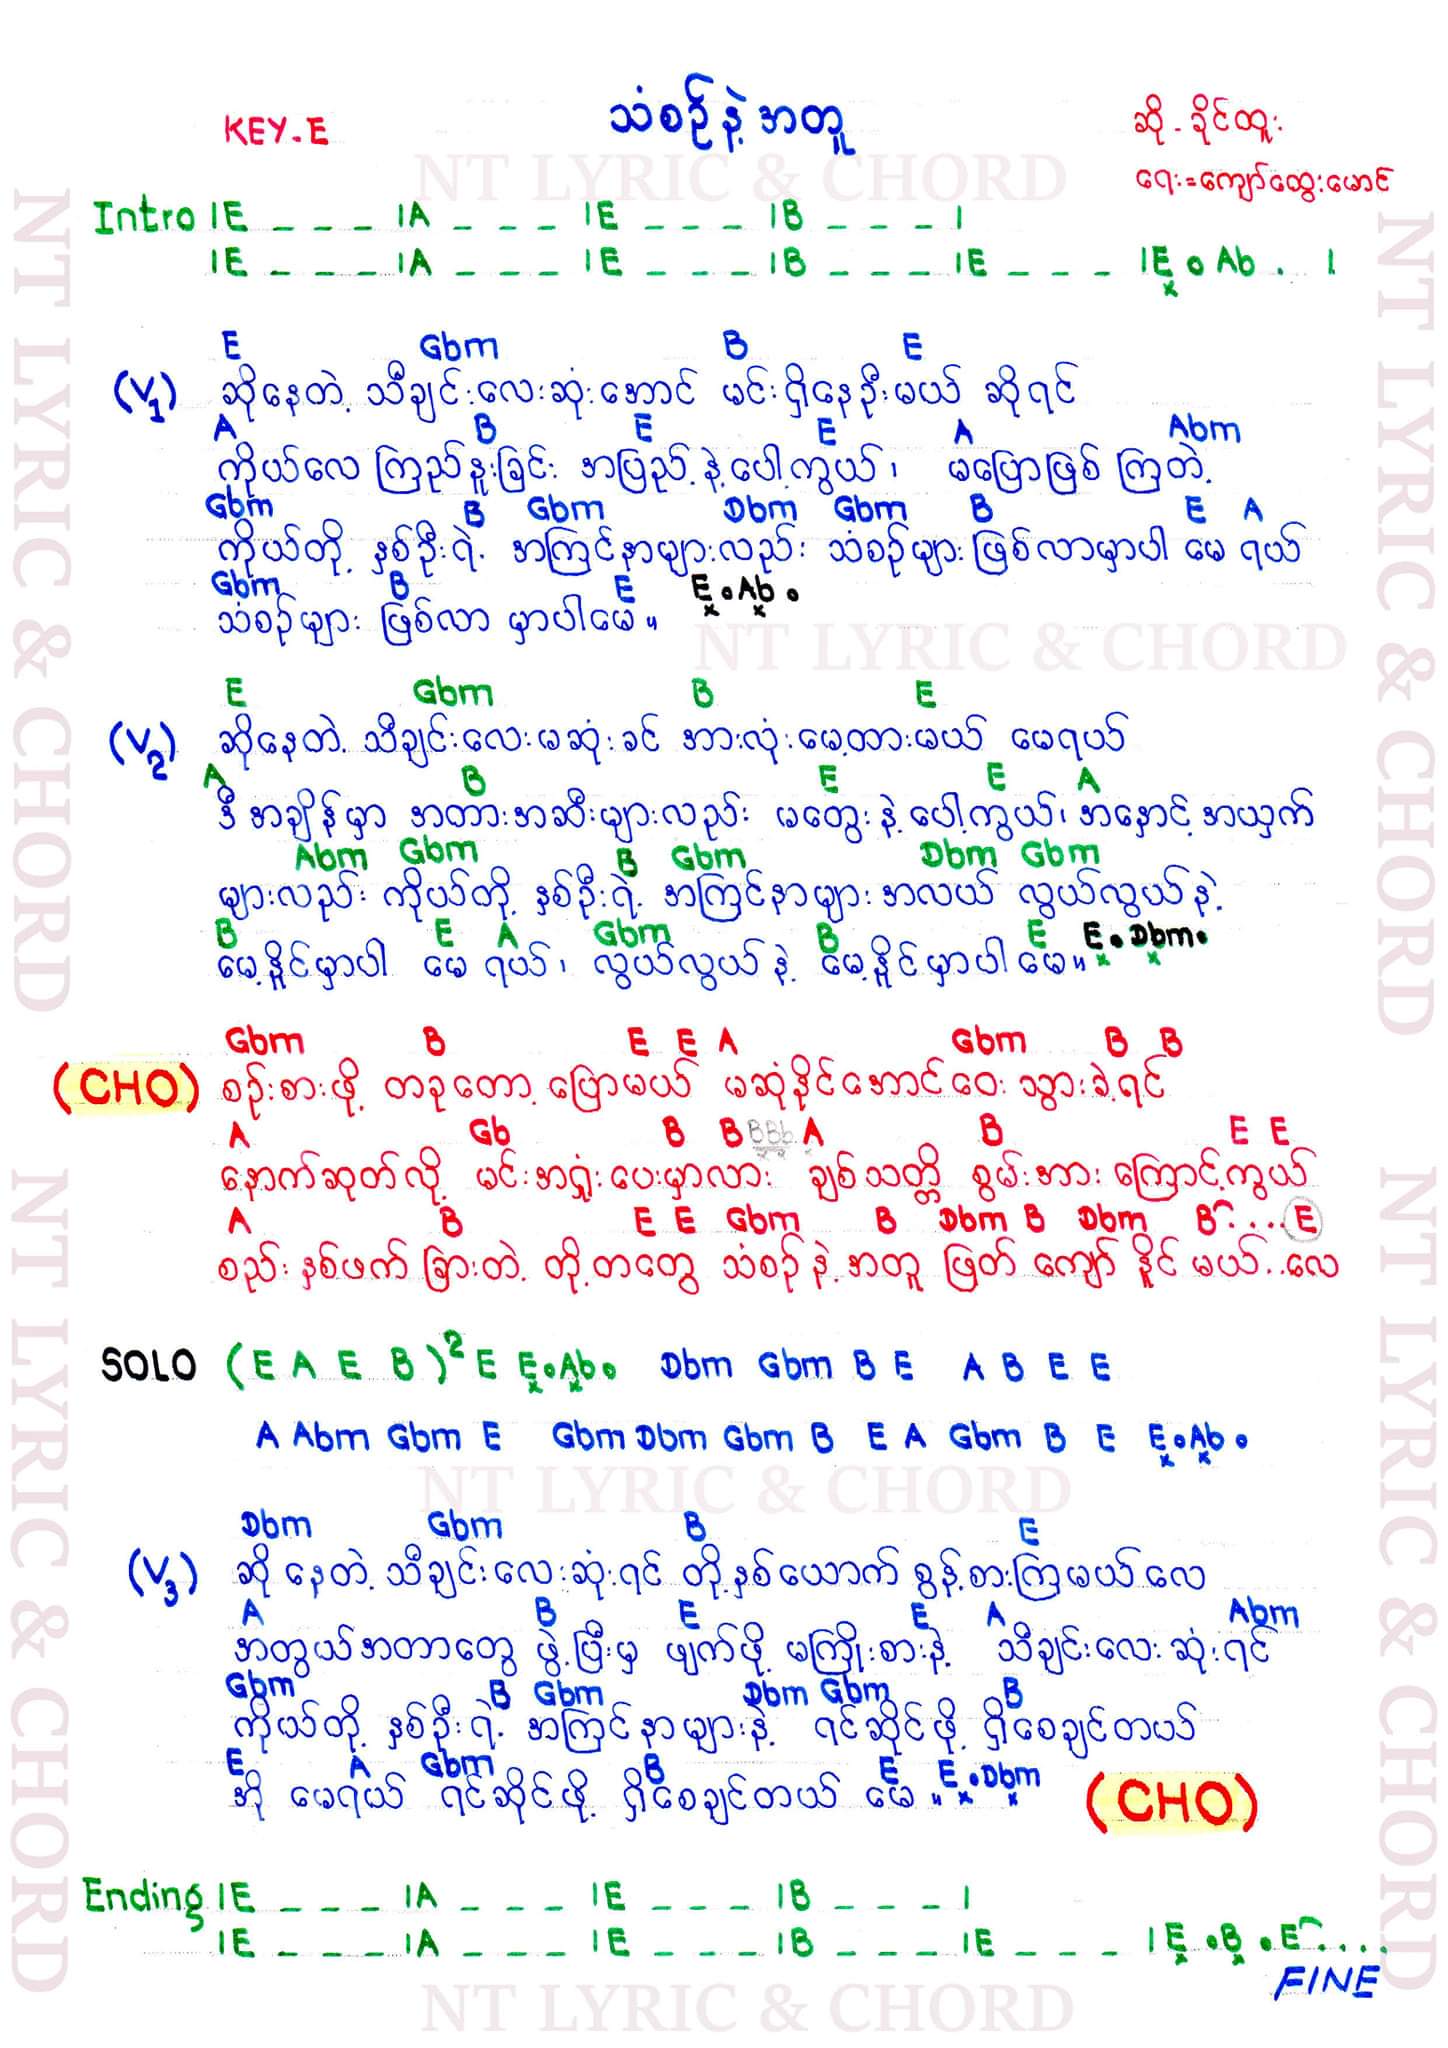 KEY-E
သံစဉ်နဲ့အတူ
ဆို - ခိုင်ထူး
ရေး=ကျော်ထွေးမောင်
NT LYRIC & CHORD
Intro |E _ _ _ |A _ _ _ |E _ _ _ |B _ _ _ |
|E _ _ _ |A _ _ _ |E _ _ _ |B _ _ _ |E _ _ _ |E • Ab . |
E Gbm B E
(V1) ဆိုနေတဲ့ သီချင်းလေးဆုံးအောင် မင်းရှိနေဦးမယ် ဆိုရင်
A B E E A Abm
ကိုယ်လေ ကြည်နူးခြင်း အပြည့်နဲ့ပေါ့ကွယ်၊ မပြောဖြစ်ကြတဲ့
Gbm B Gbm Dbm Gbm B E A
ကိုယ်တို့ နှစ်ဦးရဲ့ အကြင်နာများလည်း သံစဉ်များဖြစ်လာမှာပါ မေ ရယ်
Gbm B E E•Ab•
သံစဉ်များ ဖြစ်လာ မှာပါမေ။
NT LYRIC & CHORD
E Gbm B E
(V2) ဆိုနေတဲ့ သီချင်းလေးမဆုံးခင် အားလုံးမေ့ထားမယ် မေရယ်
A B E E A
ဒီအချိန်မှာ အတားအဆီးများလည်း မတွေးနဲ့ပေါ့ကွယ်၊ အနှောင့်အယှက်
Abm Gbm B Gbm Dbm Gbm
များလည်း ကိုယ်တို့ နှစ်ဦးရဲ့ အကြင်နာများအလယ် လွယ်လွယ်နဲ့
B E A Gbm B E E•Dbm•
မေ့နိူင်မှာပါ မေ ရယ်၊ လွယ်လွယ်နဲ့ မေ့နိူင်မှာပါမေ။
Gbm B E E A Gbm B B
(CHO) စဉ်းစားဖို့ တခုတော့ ပြောမယ် မဆုံနိုင်အောင်ဝေး သွားခဲ့ရင်
A Gb B B BBb A B E E
နောက်ဆုတ်လို့ မင်းအရှုံးပေးမှာလား ချစ်သတ္တိ စွမ်းအားကြောင့်ကွယ်
A B E E Gbm B Dbm B Dbm B .... E
စည်းနှစ်ဖက် ခြားတဲ့ တို့တတွေ သံစဉ်နဲ့အတူ ဖြတ်ကျော် နိူင် မယ်..လေ
SOLO (E A E B)2 E E•Ab• Dbm Gbm B E A B E E
A Abm Gbm E Gbm Dbm Gbm B E A Gbm B E E•Ab•
NT LYRIC & CHORD
Dbm Gbm B E
(V3) ဆိုနေတဲ့ သီချင်းလေးဆုံးရင် တို့နှစ်ယောက်စွန့်စားကြမယ်လေ
A B E E A Abm
အတွယ်အတာတွေ ဖွဲ့ပြီးမှ ဖျက်ဖို့ မကြိုးစားနဲ့ သီချင်းလေးဆုံးရင်
Gbm B Gbm Dbm Gbm B
ကိုယ်တို့ နှစ်ဦးရဲ့ အကြင်နာများနဲ့ ရင်ဆိုင်ဖို့ ရှိစေချင်တယ်
E A Gbm B E E•Dbm
အို မေရယ် ရင်ဆိုင်ဖို့ ရှိစေချင်တယ် မေ။
(CHO)
Ending |E _ _ _ |A _ _ _ |E _ _ _ |B _ _ _ |
|E _ _ _ |A _ _ _ |E _ _ _ |B _ _ _ |E _ _ _ |E •B •E ....
FINE
NT LYRIC & CHORD
NT LYRIC & CHORD
NT LYRIC & CHORD
NT LYRIC & CHORD
NT LYRIC & CHORD